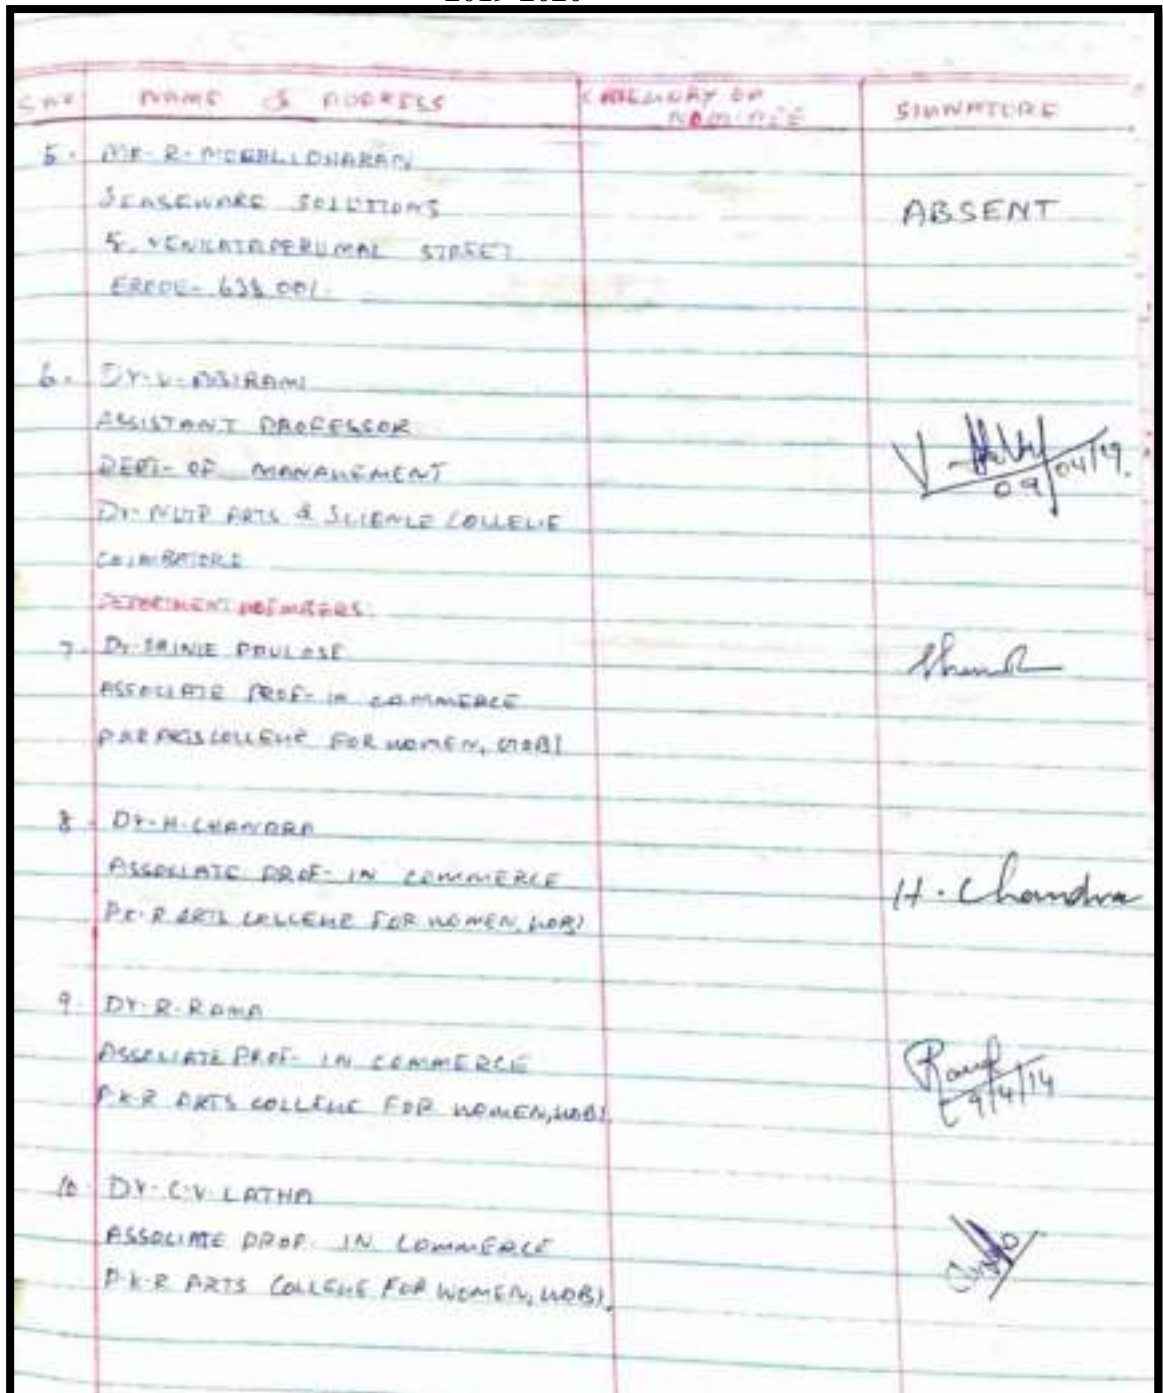 2019-2020
S.NO NAME & ADDRESS CATEGORY OF NOMINEE SIGNATURE
5. MR. R. MURALIDHARAN
SOLUTIONS ABSENT
5, VENKATAPERUMAL STREET
ERODE- 638 001.
6. Dr. V. ABIRAMI
ASSISTANT PROFESSOR
DEPT. OF MANAGEMENT V. 09/04/19.
Dr. NGP ARTS & SCIENCE COLLEGE
COIMBATORE
DEPARTMENT MEMBERS:
7. Dr. POULOSE
ASSOCIATE PROF. in COMMERCE
P.K.R ARTS COLLEGE FOR WOMEN, GOBI
8. Dr. H. CHANDRA
ASSOCIATE PROF- IN COMMERCE H. Chandra
P.K.R ARTS COLLEGE FOR WOMEN, GOBI
9. Dr. R. RAMA
ASSOCIATE PROF- IN COMMERCE
P.K.R ARTS COLLEGE FOR WOMEN, GOBI.
10. Dr. C.V. LATHA
ASSOCIATE PROF. IN COMMERCE
P.K.R ARTS COLLEGE FOR WOMEN, GOBI.